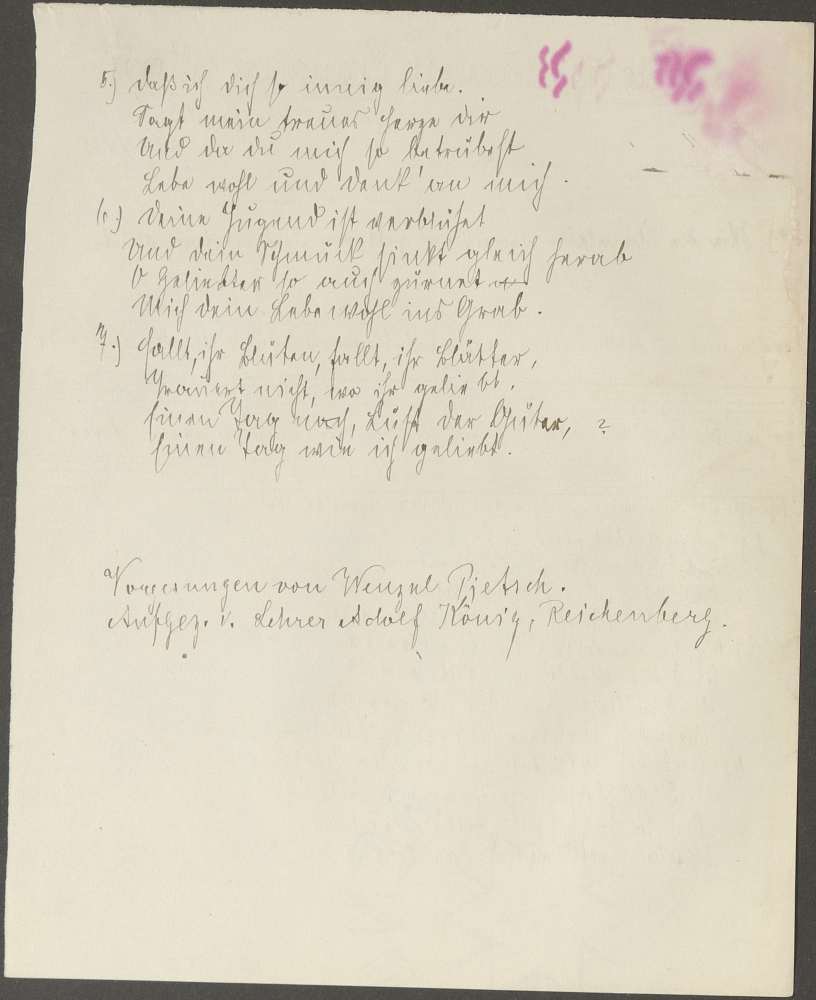 5.) Daß ich dich so innig liebe.
Sagt mein treues Herze dir
Und da du mich so betrübest
Lebe wohl und denk' an mich.
6.) Deine Jugend ist verblühet
Und dein Schmuck sinkt gleich herab
O Geliebter so auch zürnet
Mich dein Lebewohl ins Grab.
7.) Fallt, ihr Blüten, fallt, ihr Blätter,
Trauert nicht, wo ihr geliebt.
Einen Tag noch, Lust der Güter, ?
Einen Tag wie ich geliebt.
Vorgesungen von Wenzel Pietsch.
Aufgez. v. Lehrer Adolf König, Reichenberg.